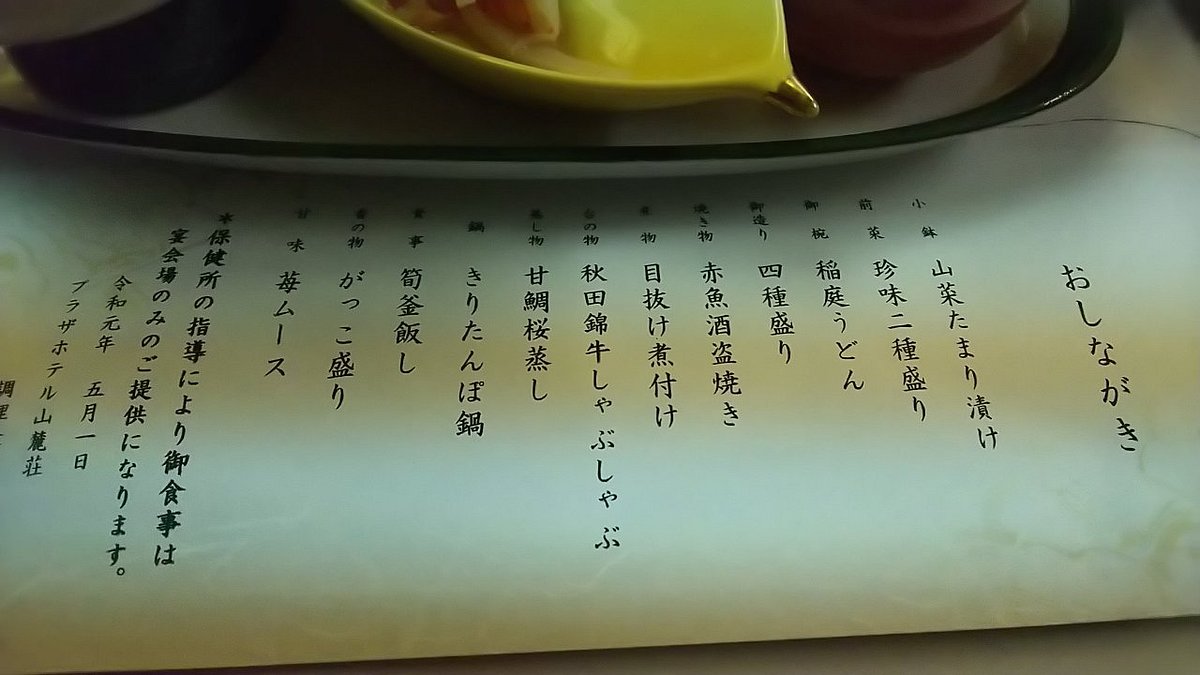 おしながき
小鉢 山菜たまり漬け
前菜 珍味二種盛り
御椀 稲庭うどん
御造り 四種盛り
焼き物 赤魚酒盗焼き
煮物 目抜け煮付け
台の物 秋田錦牛しゃぶしゃぶ
蒸し物 甘鯛桜蒸し
鍋 きりたんぽ鍋
食事 筍釜飯し
香の物 がっこ盛り
甘味 苺ムース
*保健所の指導により御食事は
宴会場のみのご提供になります。
令和元年 五月一日
プラザホテル山麓荘
調理